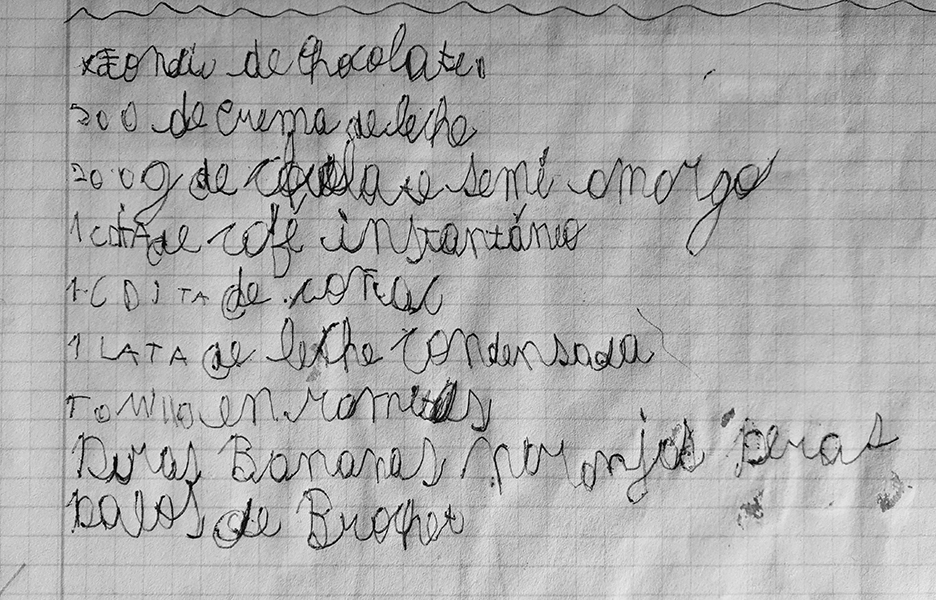 Fondiu de chocolate
200 de crema de leche
200 g de chocolate semi amargo
1 cdita de café instantáneo
1 CDITA de coñac
1 LATA de leche condensada
Tomillo en ramitas
Peras Bananas naranjas peras
palos de Brochet